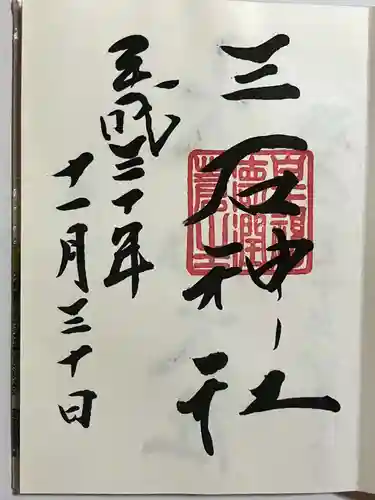 三石神社
平成三十年
十一月三十日